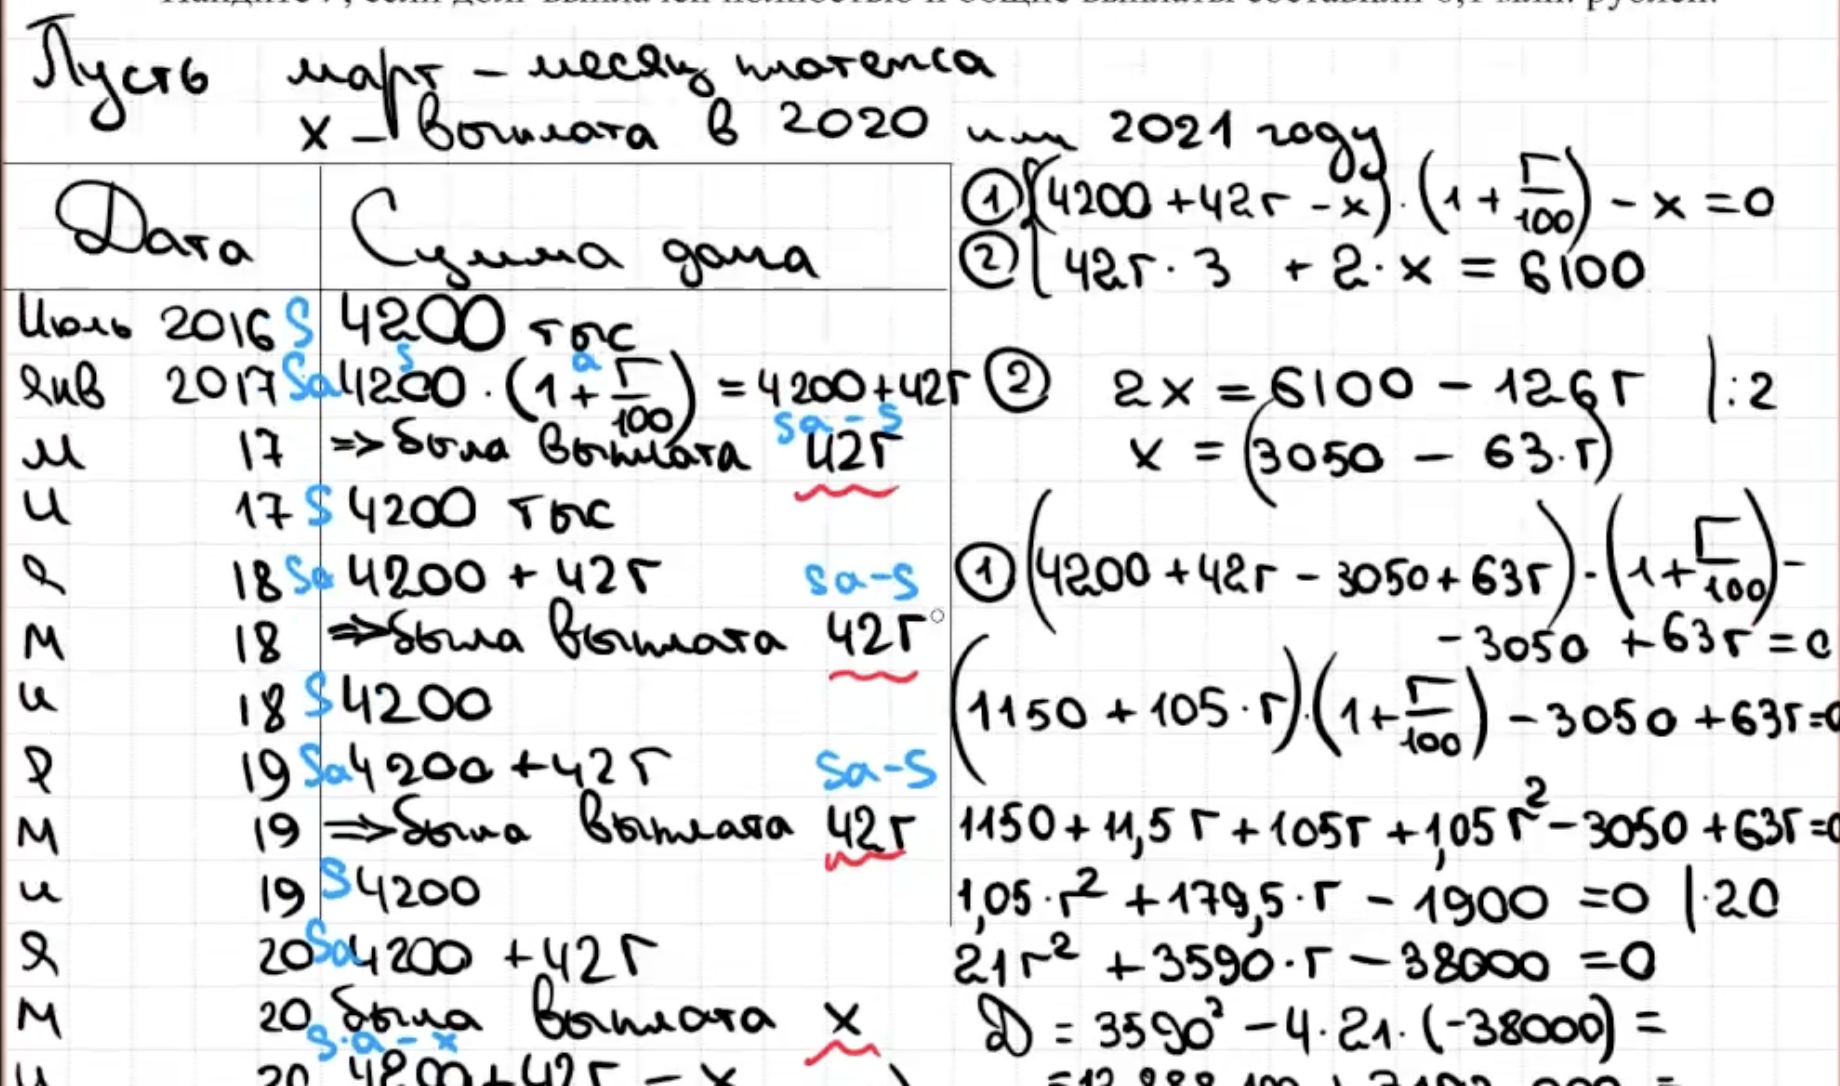 Найдите r, если долг выплачен полностью и общие выплаты составили 6,1 млн. рублей.
Пусть март – месяц платежа
x – выплата в 2020 или 2021 году
Дата Сумма долга
Июль 2016 S 4200 тыс
Янв 2017 Sa 4200 · (1 + r/100) = 4200+42r
s a
М 17 => была выплата 42r
sa-s
И 17 S 4200 тыс
Я 18 Sa 4200 + 42r sa-s
М 18 => была выплата 42r
И 18 S 4200
Я 19 Sa 4200 +42r sa-s
М 19 => была выплата 42r
И 19 S 4200
Я 20 Sa 4200 +42r
М 20 была выплата x
s·a-x
И 20 4200+42r - x
① (4200 +42r -x) · (1 + r/100) - x =0
② 42r · 3 + 2 · x = 6100
② 2x = 6100 - 126r |:2
x = (3050 - 63·r)
① (4200 +42r - 3050+63r) · (1+ r/100) -
- 3050 +63r = 0
(1150 +105·r)·(1+ r/100) - 3050 +63r=0
1150+11,5r +105r +1,05r² -3050 +63r=0
1,05·r² +179,5·r - 1900 =0 |·20
21r² +3590·r -38000 =0
D = 3590² -4·21·(-38000) =